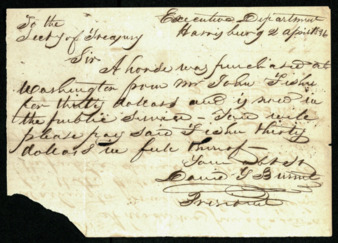 Executive Department
Harrisburg 2 April 1836
To the
Secty of Treasury
Sir
A horse was purchased at
Washington from Mr John Fisher
for thirty dollars and is now in
the public Service - You will
please pay said Fisher thirty
dollars in full thereof
Your Obt St
David G Burnet
President